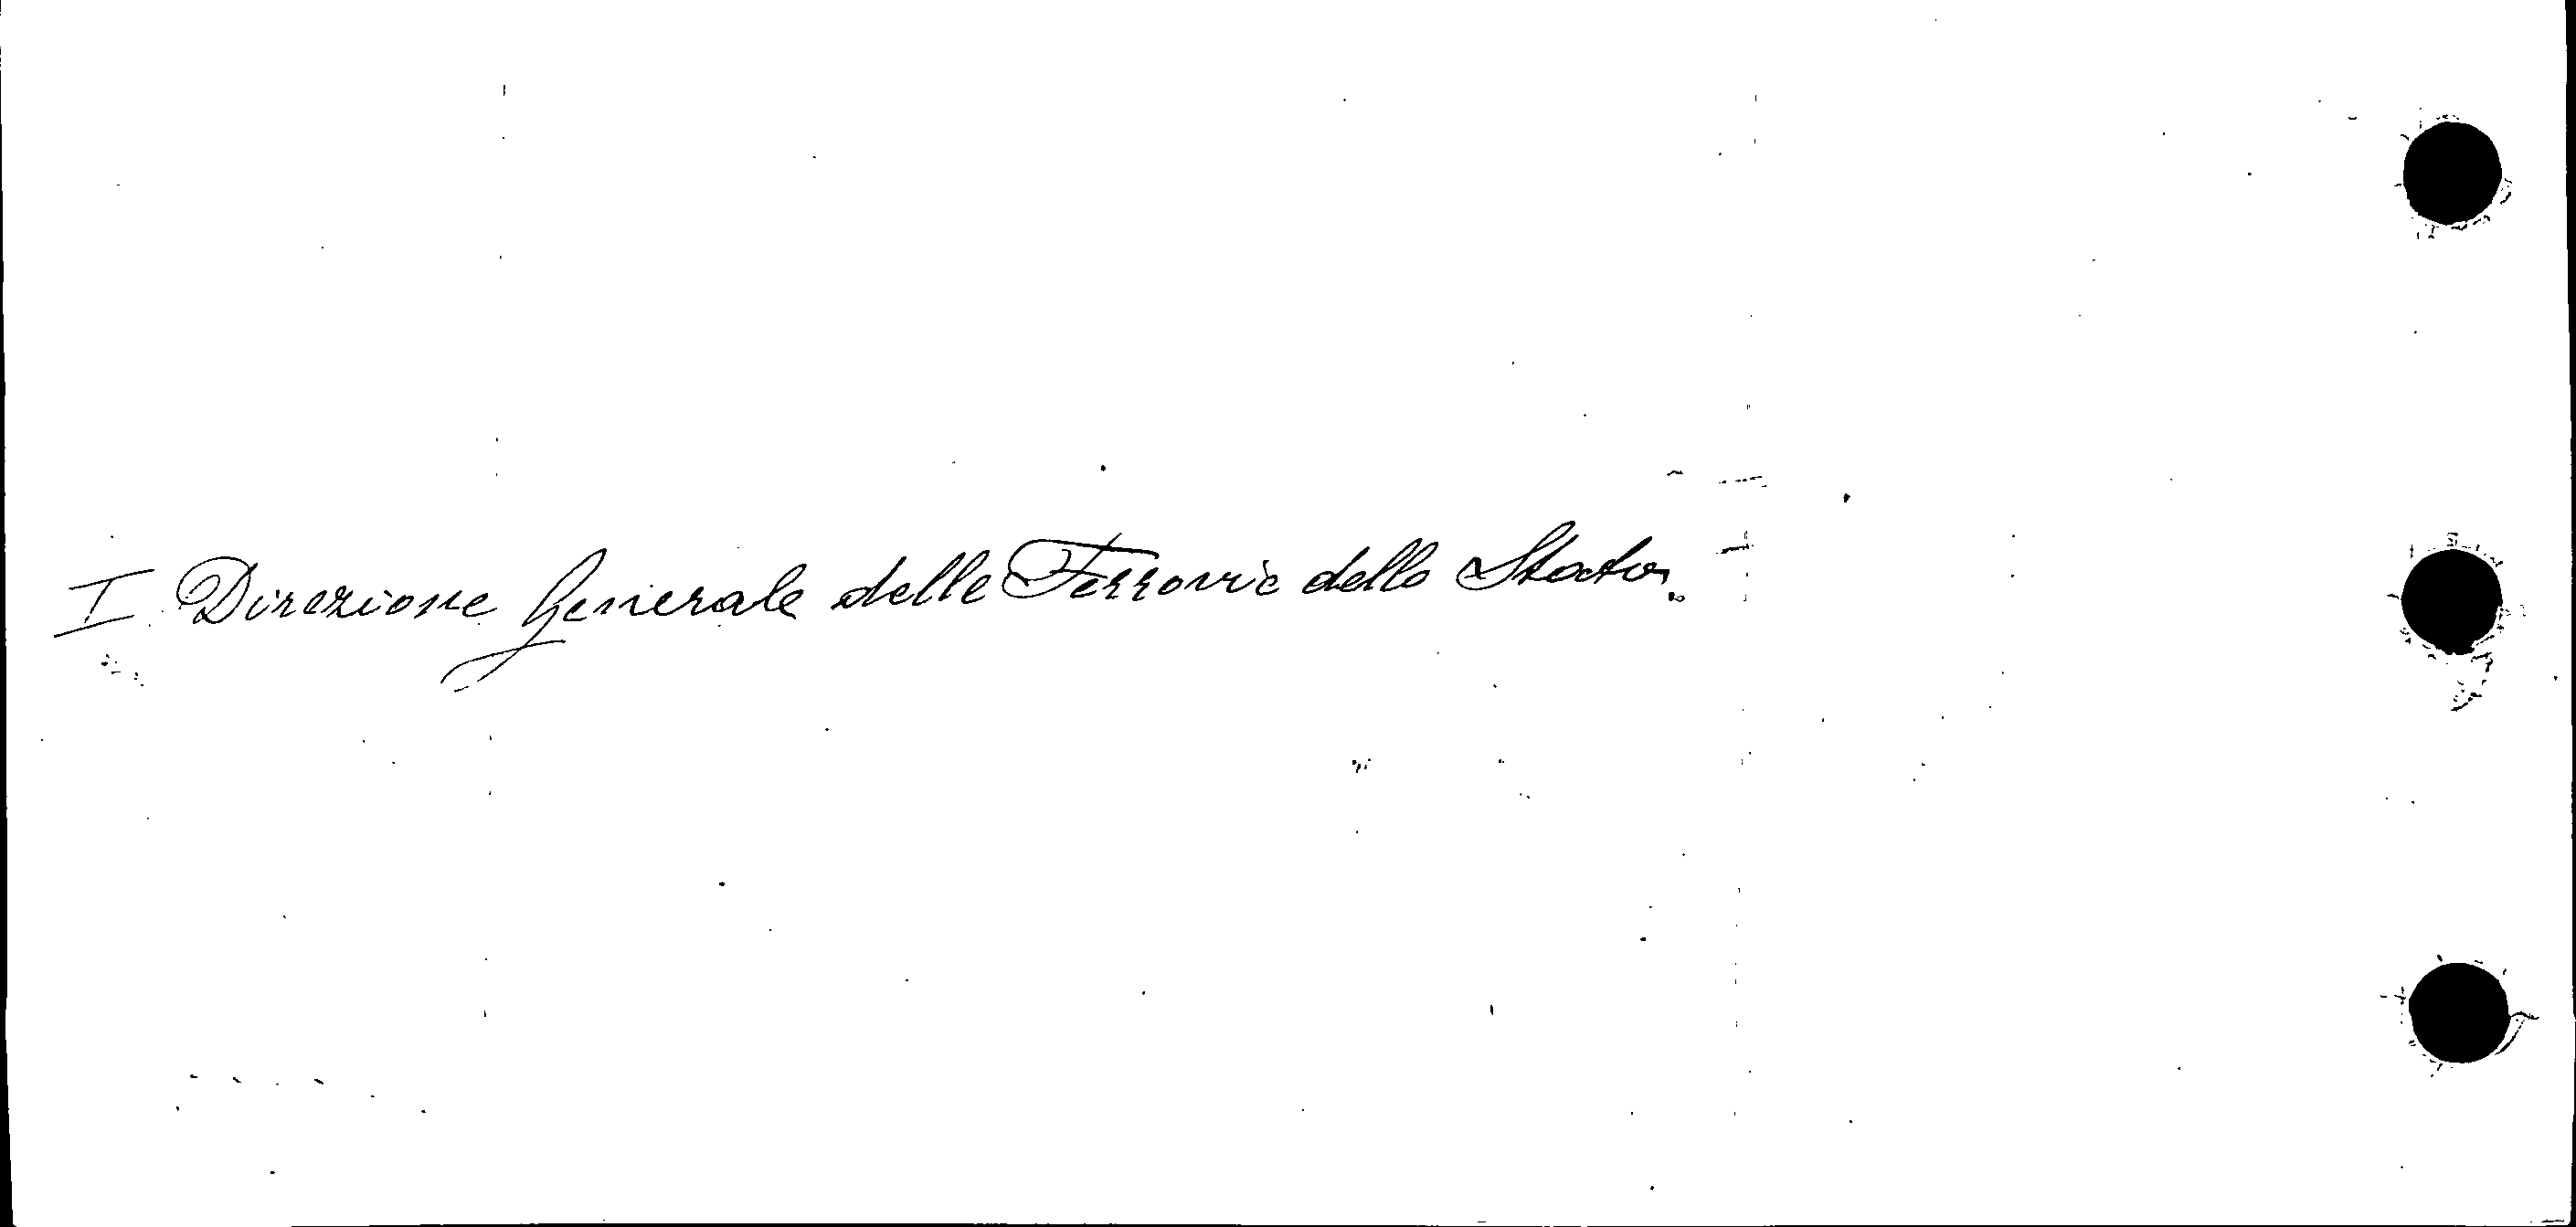 I Direzione Generale delle Ferrovie dello Stato.